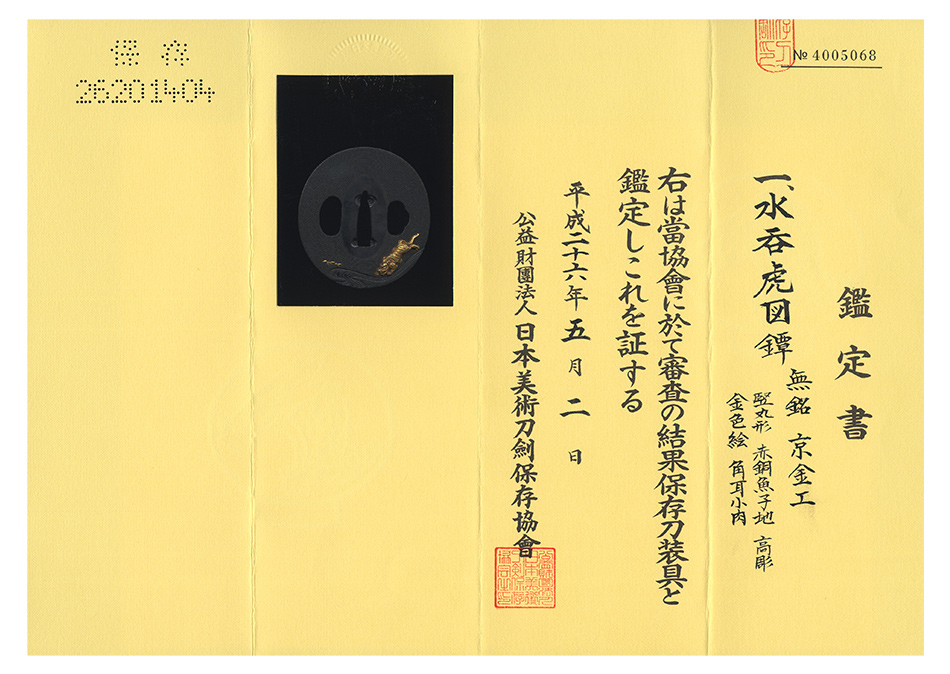 № 4005068
鑑定書
一、水呑虎図鐔 無銘 京金工
竪丸形 赤銅魚子地 高彫
金色絵 角耳小肉
右は當協會に於て審査の結果保存刀装具と
鑑定しこれを証する
平成二十六年五月二日
公益財團法人 日本美術刀劍保存協會
保存
26201404